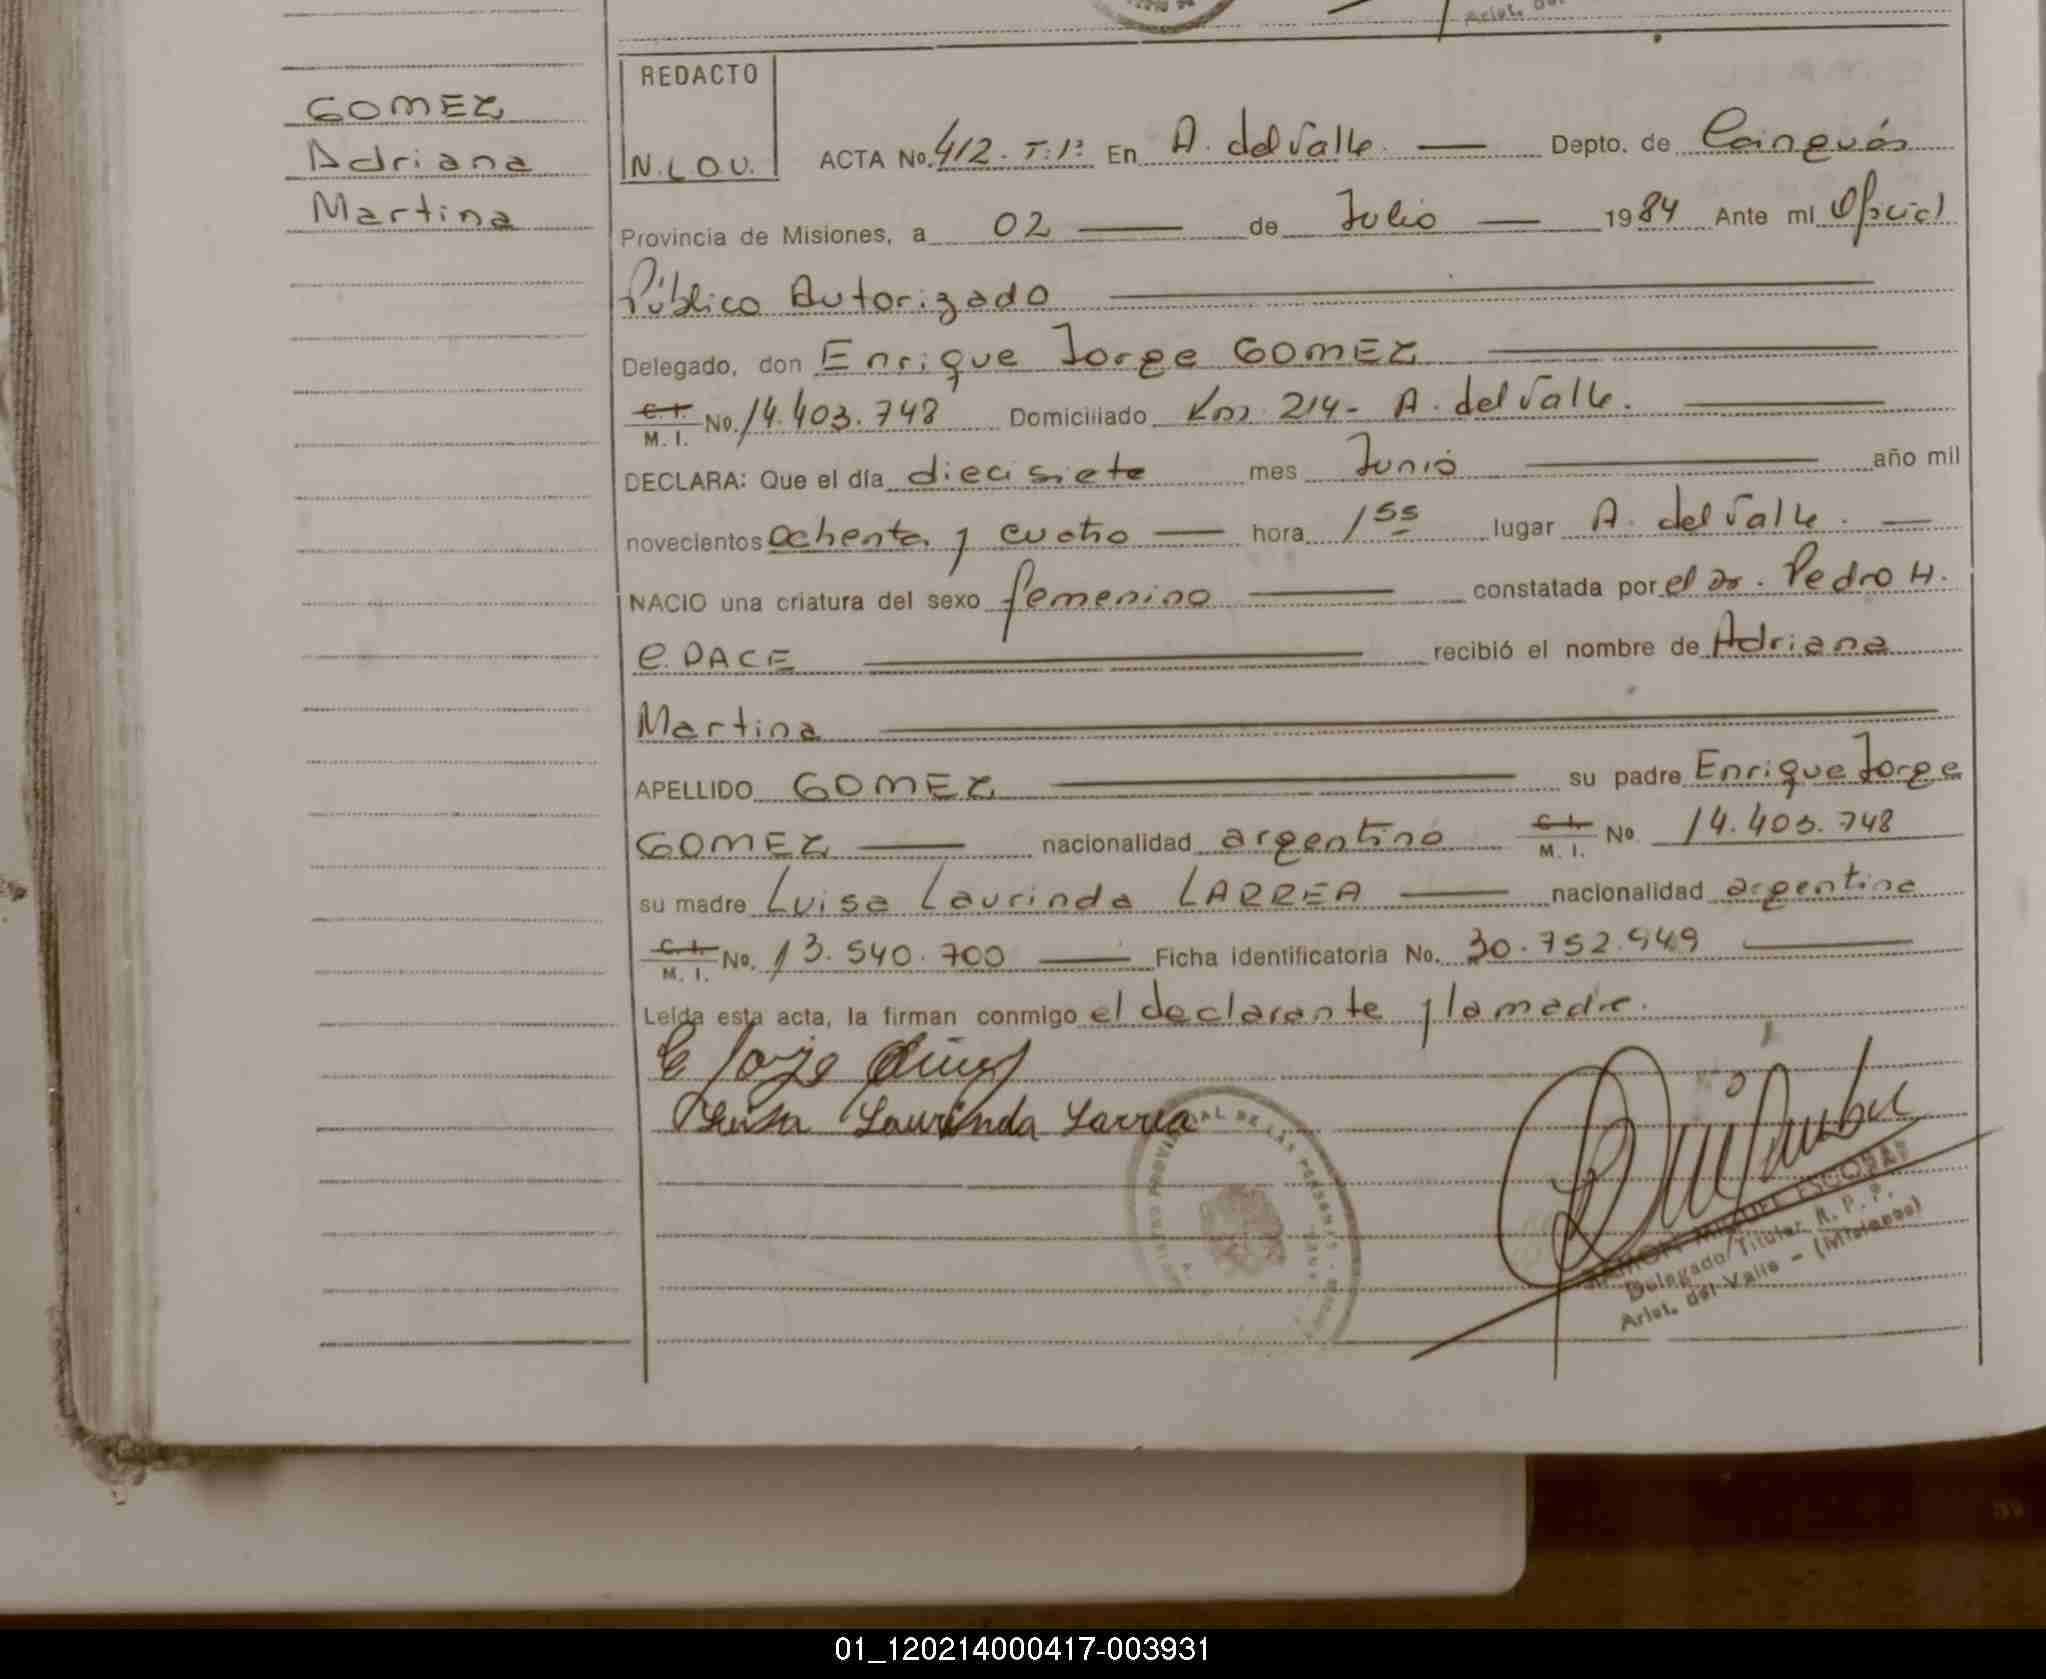 GOMEZ
Adriana
Martina
REDACTO
N.L.O.U.
ACTA No. 412. T: 1º En A. del Valle. Depto. de Cainguás
Provincia de Misiones, a 02 de Julio 1984 Ante mí Oficial
Público Autorizado
Delegado, don Enrique Jorge GOMEZ
C.I. M.I. No. 14.403.748 Domiciliado Km 214- A. del Valle.
DECLARA: Que el día diecisiete mes Junio año mil
novecientos ochenta y cuatro hora 1 55 lugar A. del Valle.
NACIO una criatura del sexo femenino constatada por el Dr. Pedro H.
C. DACE recibió el nombre de Adriana
Martina
APELLIDO GOMEZ su padre Enrique Jorge
GOMEZ nacionalidad argentino C.I. M.I. No. 14.403.748
su madre Luisa Laurinda LARREA nacionalidad argentina
C.I. M.I. No. 13.540.700 Ficha identificatoria No. 30.752.949
Leída esta acta, la firman conmigo el declarante y la madre.
E Jorge
Luisa Laurinda Larrea
RAMON MIGUEL ESCOBAR
Delegado Titular R. P. P.
Arist. del Valle - (Misiones)
01_120214000417-003931